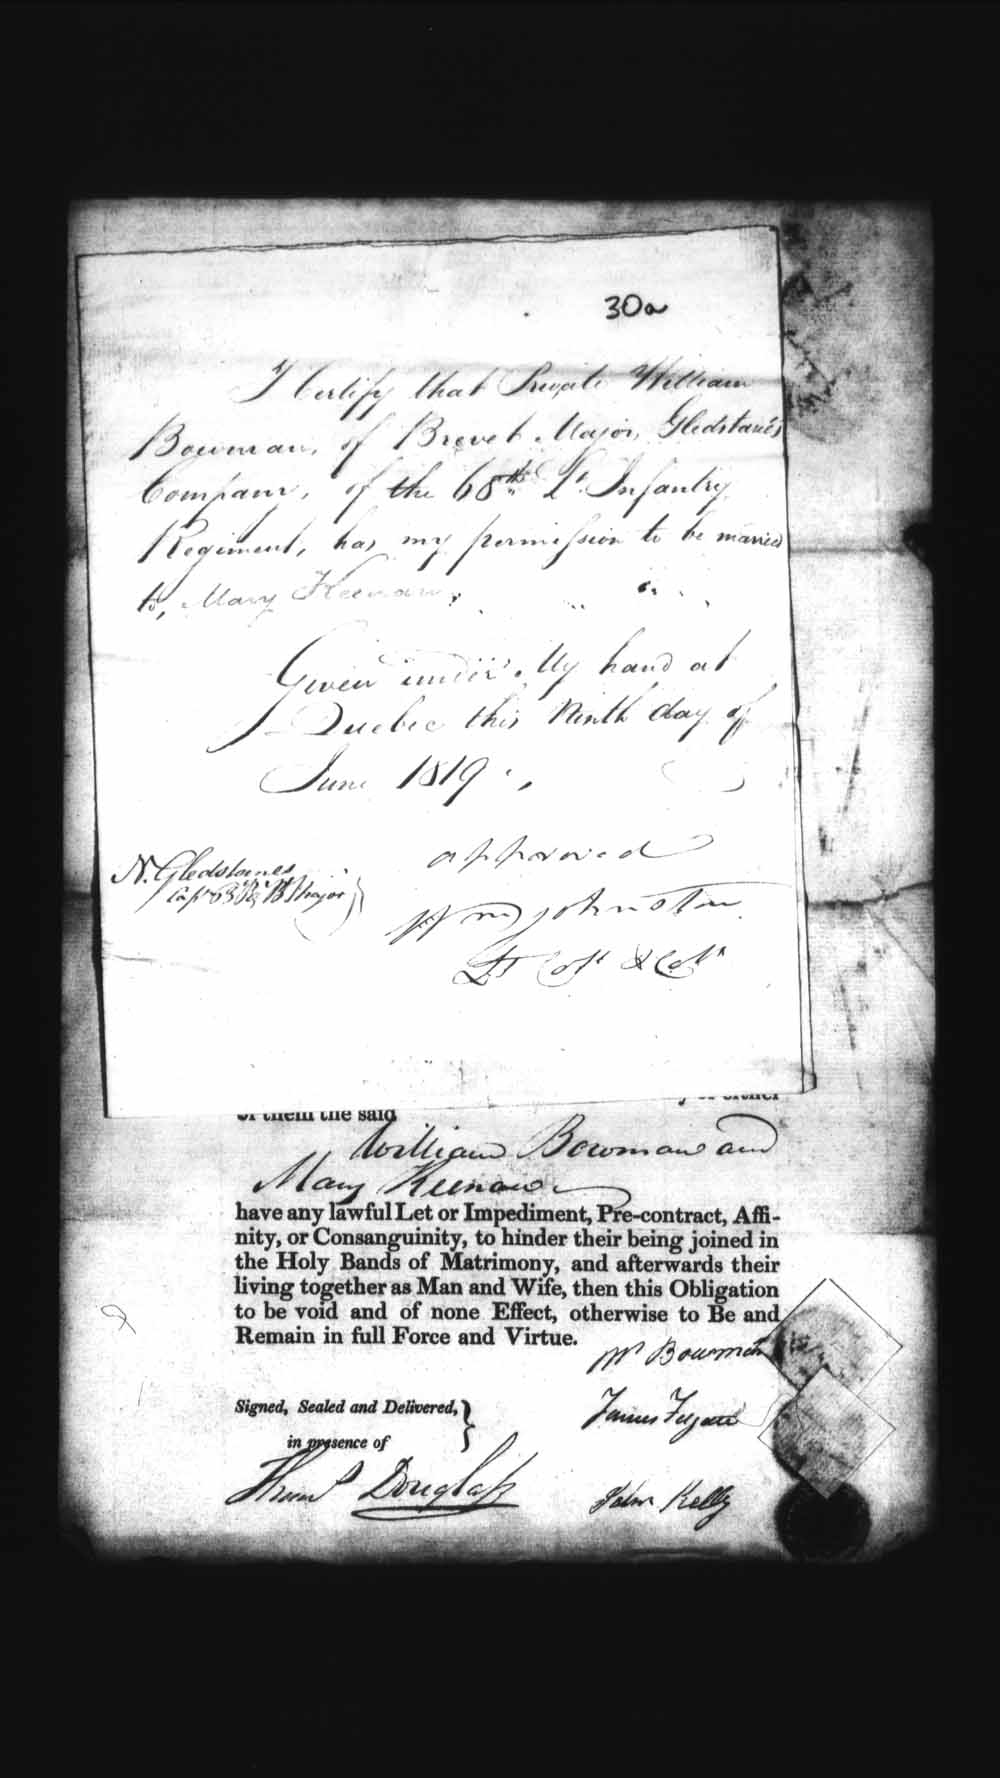 30a
I Certify that Private William
Bowman, of Brevet Major, Gledstanes
Company, of the 68th Lt. Infantry
Regiment, has my permission to be married
to, Mary Keenan
Given under My hand at
Quebec this Ninth day of
June 1819
approved
N. Gledstanes
Capt 68 & B Major
Wm Johnston
Lt Col & Col
of them the said
either
William Bowman and
Mary Keenan
have any lawful Let or Impediment, Pre-contract, Affi-
nity, or Consanguinity, to hinder their being joined in
the Holy Bands of Matrimony, and afterwards their
living together as Man and Wife, then this Obligation
to be void and of none Effect, otherwise to Be and
Remain in full Force and Virtue.
Wm Bowman
Signed, Sealed and Delivered,
James
in presence of
Douglass
John Kelly